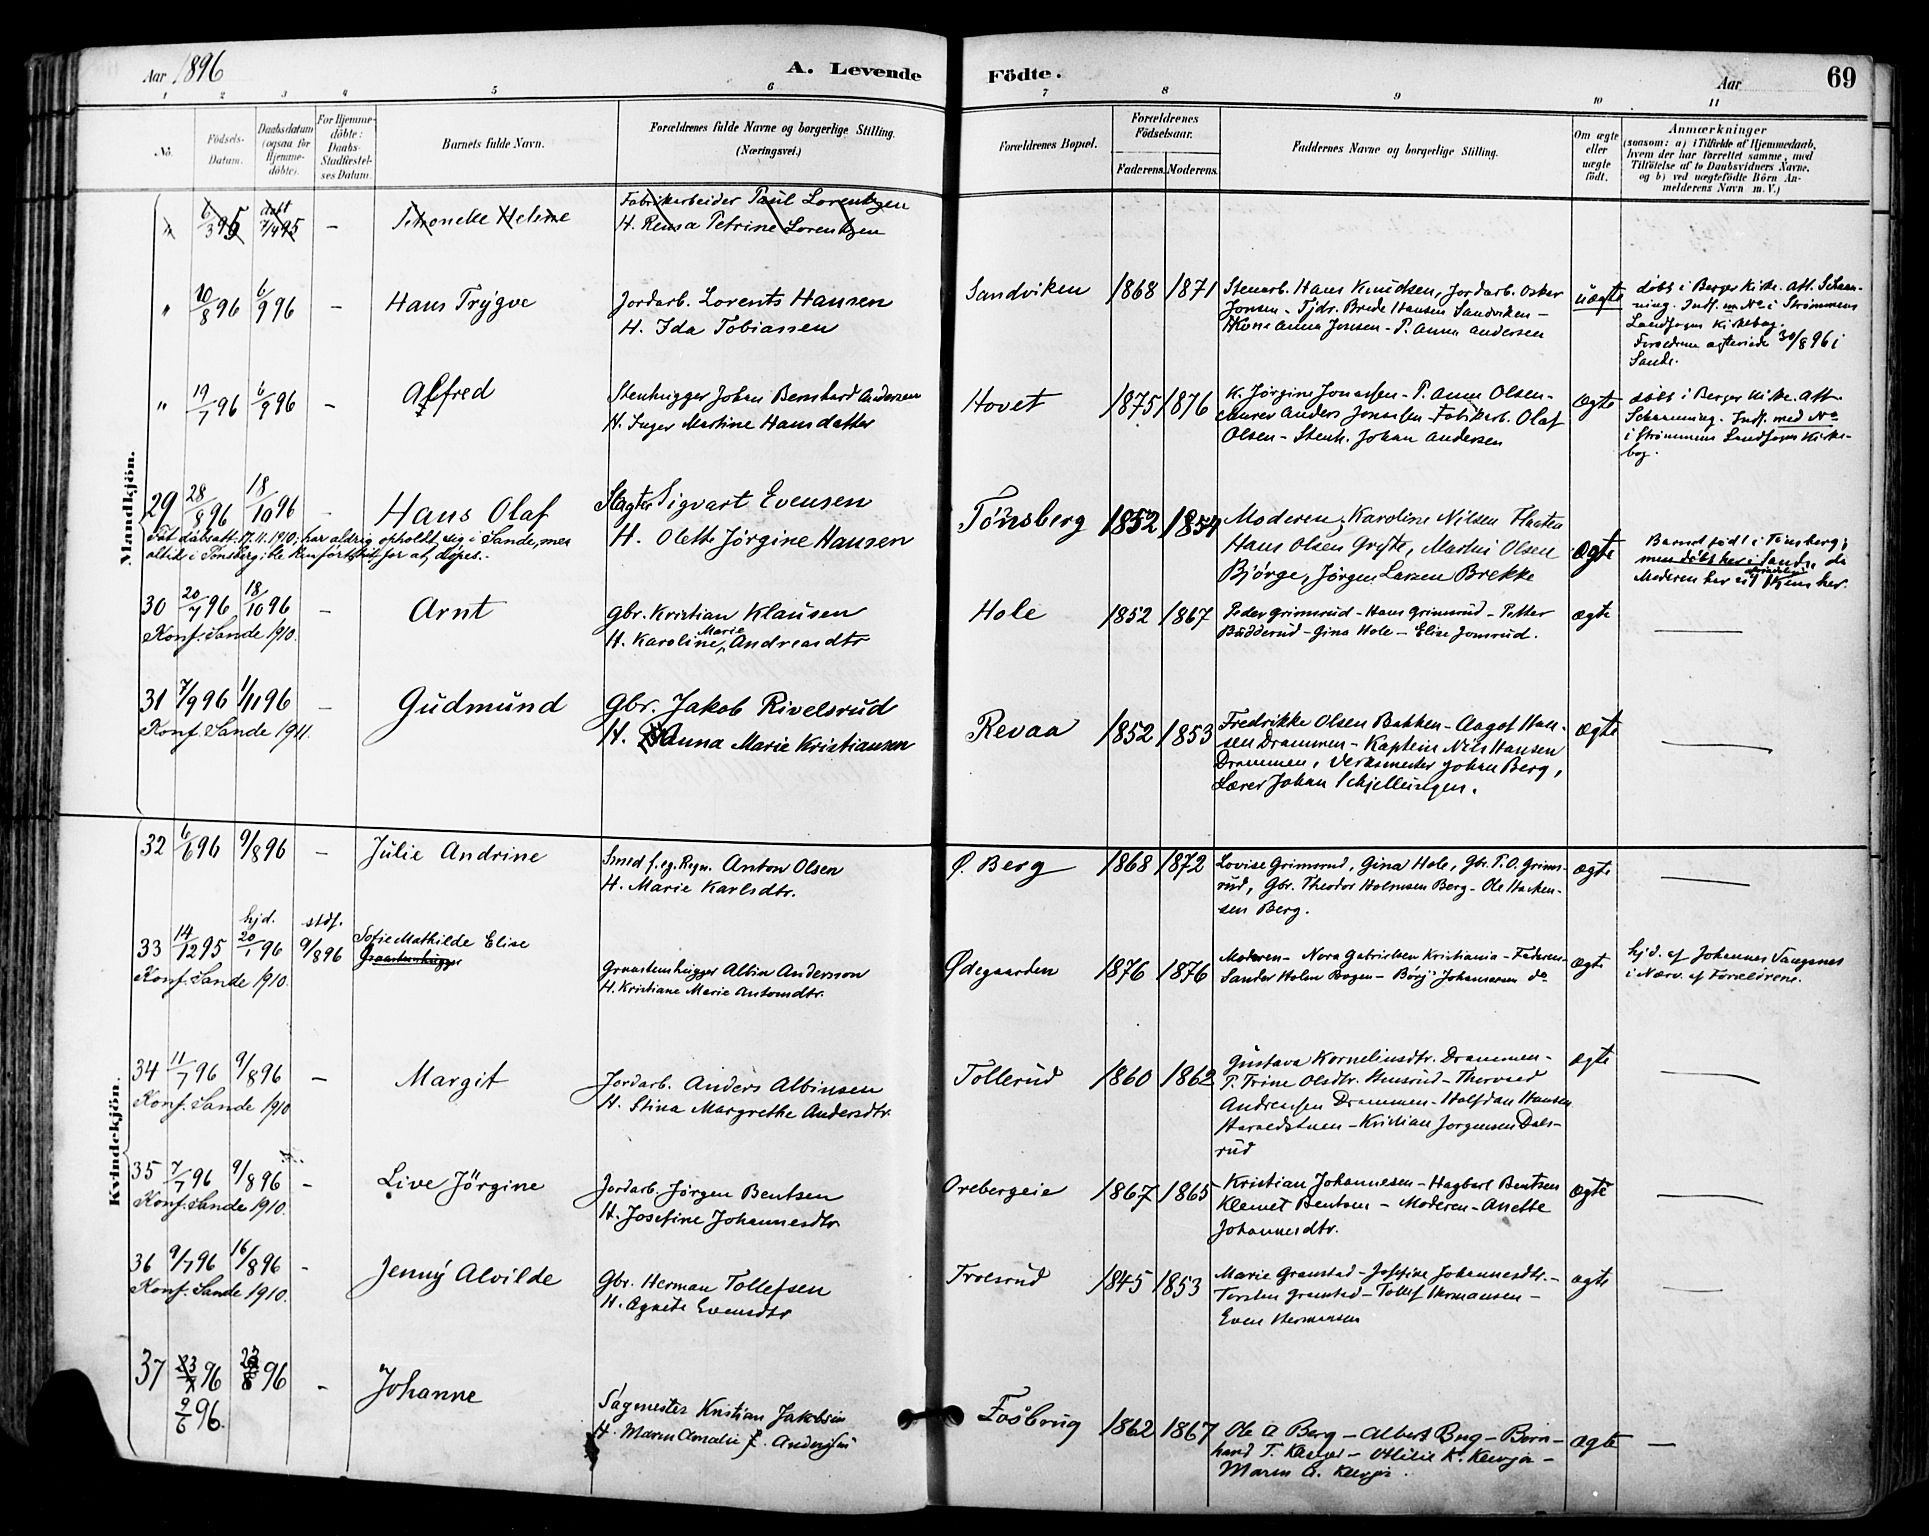 Aar 1896
A. Levende
Födte.
Aar
69
1 2 3 4 5 6 7 8 9 10 11
No.
Födsels-
Datum.
Daabsdatum
(ogsaa for
Hjemme-
döbte).
For Hjemme-
döbte:
Daabs-
Stadfæstel-
ses Datum.
Barnets fulde Navn.
Forældrenes fulde Navne og borgerlige Stilling.
(Næringsvei.)
Forældrenes Bopæl.
Forældrenes
Födselsaar.
Faderens. Moderens.
Faddernes Navne og borgerlige Stilling.
Om ægte
eller
uægte
födt.
Anmærkninger
(saasom: a) i Tilfælde af Hjemmedaab,
hvem der har forrettet samme, med
Tilföielse af to Daabsvidners Navne,
og b) ved uægtefödte Börn An-
melderens Navn m. V.)
Mandkjön.
" 6/3 95 döbt 7/4 95 - Petronelle Helene
Fabrikarbeider Paul Lorentzen
H. Rensa Petrine Lorentzen
" 10/8 96 6/9 96 - Hans Trygve
Jordarb. Lorents Hansen
H. Ida Tobiassen
Sandviken 1868 1871
Stenarb. Hans Knudsen, Jordarb. Oskar
Jonsen - Tjdr. Brede Hansen Sandviken -
Kone Anna Jensen - P. Anna Andersen
uægte
döbt i Berger Kirke. Att. Schan-
ning. Indf. m No i Strømmens
Landsogns Kirkebog.
Forældrene ægteviede 30/8 96 i
Sande.
" 19/7 96 6/9 96 - Alfred
Stenhugger Johan Bernhard Andersen
H. Inger Martine Hansdatter
Hovet 1875 1876
K. Jørgine Jonassen - P. Anna Olsen -
Anders Jonassen - Fabikarb. Olaf
Olsen - Stenh. Johan Andersen
ægte
döbt i Berger Kirke. Att.
Schanning. Indf. med No
i Strømmens Landsogns Kirke-
bog.
29 28/8 96 18/10 96 - Hans Olaf
Slagter Sigvart Evensen
H. Olette Jørgine Hansen
Fåt dåbsatt. 17.11.1910; har aldrig opholdt sig i Sande, men
altid i Tønsberg;
Tønsberg 1852 1854
Moderen, Karoline Nilsen Flaaten
Hans Olsen Grefte, Martin Olsen
Bjørge, Jørgen Larsen Brekke
ægte
Barnet født i Tønsberg;
men døbt her i Sande da
Moderen her er hjem her.
30 20/7 96 18/10 96 - Arnt
Gbr. Kristian Klausen
H. Karoline Marie Andreasdtr
Konf. Sande 1910.
Hole 1852 1867
Peder Grimsrud - Hans Grimsrud - Petter
Budderud - Gina Hole - Elise Jonsrud.
ægte
31 7/9 96 1/11 96 - Gudmund
Gbr. Jakob Rivelsrud
H. Anna Marie Kristiansen
Konf. Sande 1911.
Revaa 1852 1853
Fredrikke Olsen Bakken - Aagot Han-
sen Drammen - Kaptein Nils Hansen
Drammen, Verksmester Johan Berg,
Lærer Johan Schjellungen.
ægte
Kvindekjön.
32 6/6 96 9/8 96 - Julie Andrine
Smed f. eg. Regn. Anton Olsen
H. Marie Karlsdtr.
Ø. Berg 1868 1872
Lovise Grimsrud, Gina Hole, Gbr. P. O. Grims-
rud, Gbr. Theodor Holmsen Berg - Ole Haaken-
sen Berg.
ægte
33 14/12 95 hjd. 20/1 96 stdf. 9/8 96
Sofie Mathilde Elise
Graastenshugger
Graastenshugger Albin Andersson
H. Kristiane Marie Antonsdtr.
Konf. Sande 1910.
Ødegaarden 1876 1876
Moderen - Nora Gabrielsen Kristiania - Faderen
Sander Holm Bogen - Börj Johannessen do
ægte
hjd. af Johannes Vangsnes
i Nærv. af Forældrene.
34 11/7 96 9/8 96 - Margit
Jordarb. Anders Albinsen
H. Stina Margrethe Andersdtr.
Konf. Sande 1910
Tollerud 1860 1862
Gustava Korneliusdtr. Drammen -
P. Trine Olsdtr. Hensrud - Thorvald
Andreassen Drammen - Halfdan Hansen
Haraldstuen - Kristian Jørgensen Dals-
rud
ægte
35 7/7 96 9/8 96 - Live Jörgine
Jordarb. Jørgen Bentsen
H. Josefine Johannesdtr
Konf. Sande 1910.
Orebergeie 1867 1865
Kristian Johannesen - Hagbart Bentsen
Klemet Bentsen - Moderen - Anette
Johannesdtr.
ægte
36 9/7 96 16/8 96 - Jenny Alvilde
Gbr. Herman Tollefsen
H. Agnete Evensdtr
Konf. Sande 1910.
Trolsrud 1845 1853
Marie Granstad - Josefine Johannesdtr. -
Torsten Granstad - Tollef Hermansen -
Even Hermansen
ægte
37 23/7 96 23/8 96 - Johanne
9/6 96.
Sagmester Kristian Jakobsen
H. Maren Amalie Andersen
Fosbrug 1862 1867
Ole A Berg - Albert Berg - Bern-
hard T. - Othilie K. -
Maren
ægte